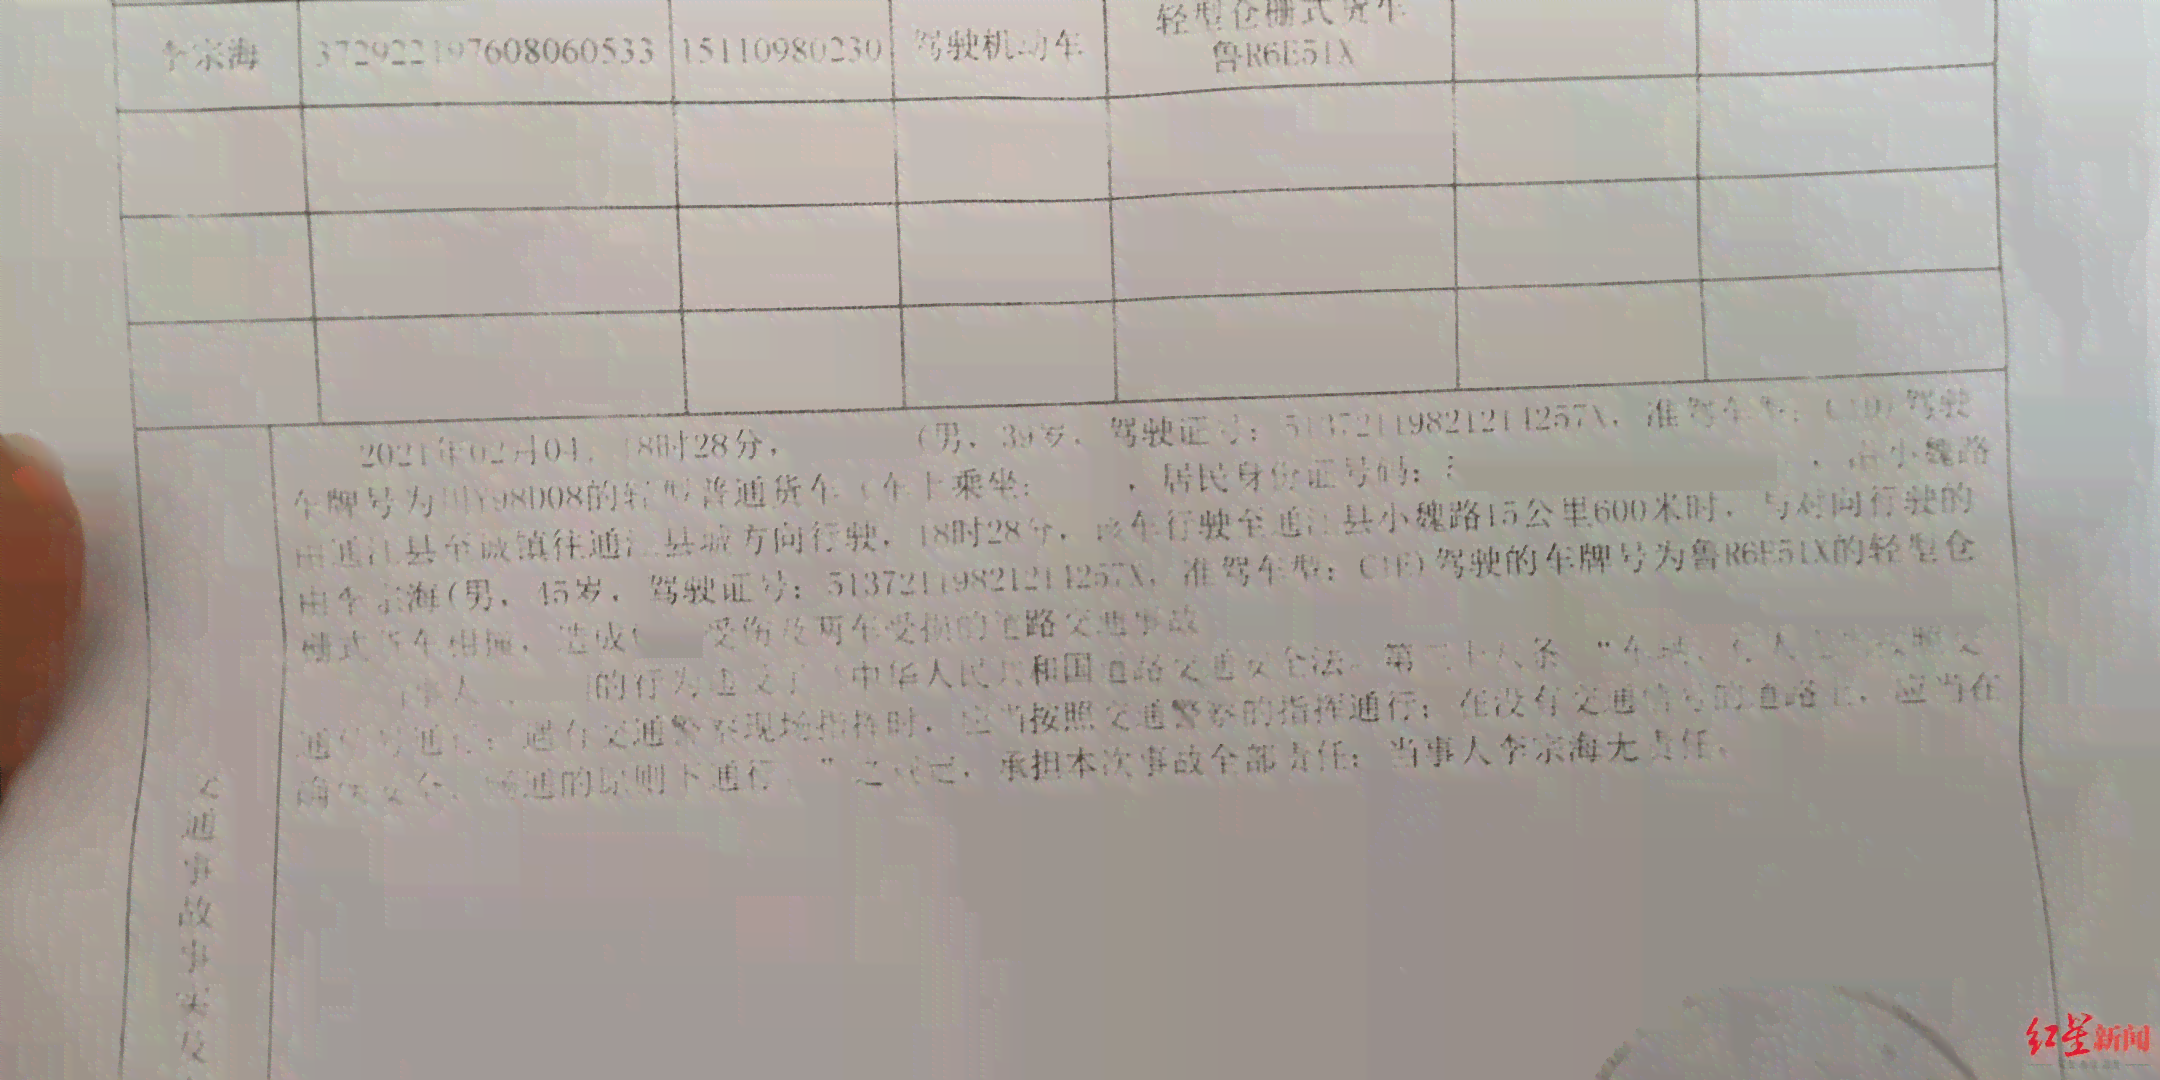 李宗海 372922197608060533 15110980230 驾驶机动车 轻型仓栅式货车
鲁R6E51X
2021年02月04 18时28分, (男, 39岁, 驾驶证号: 51372119821211257X, 准驾车型: 驾驶
车牌号为川Y98D08的轻型普通货车(车上乘坐: , 居民身份证号码: , 沿小魏路
由通江县至诚镇往通江县城方向行驶, 18时28分, 该车行驶至通江县小魏路15公里600米时, 与对向行驶的
由李宗海(男, 45岁, 驾驶证号: 51372119821211257X, 准驾车型: C1E)驾驶的车牌号为鲁R6E51X的轻型仓
栅式货车相撞, 造成 受伤及两车受损的道路交通事故
当事人 的行为违反了《中华人民共和国道路交通安全法》第三十八条 “车辆、行人应当按照交
通信号通行; 遇有交通警察现场指挥时, 应当按照交通警察的指挥通行; 在没有交通信号的道路上, 应当在
确保安全、畅通的原则下通行。”之规定, 承担本次事故全部责任; 当事人李宗海无责任。
交通事故事实及
红星新闻